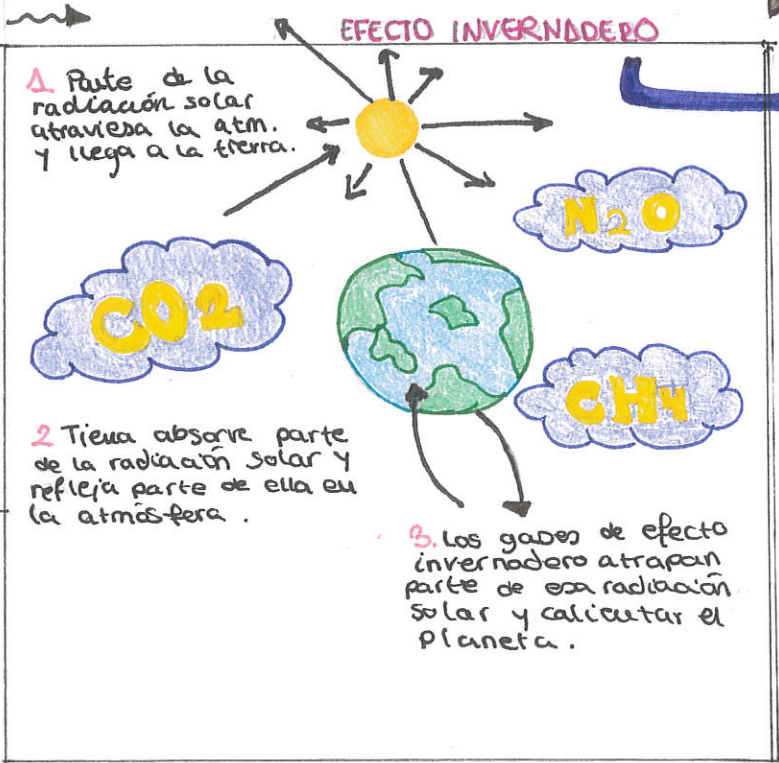 EFECTO INVERNADERO
1 Parte de la
radiación solar
atraviesa la atm.
y llega a la tierra.
N2O
CO2
CH4
2 Tierra absorve parte
de la radiación solar y
refleja parte de ella en
la atmósfera.
3. Los gases de efecto
invernadero atrapan
parte de esa radiación
solar y calientar el
planeta.